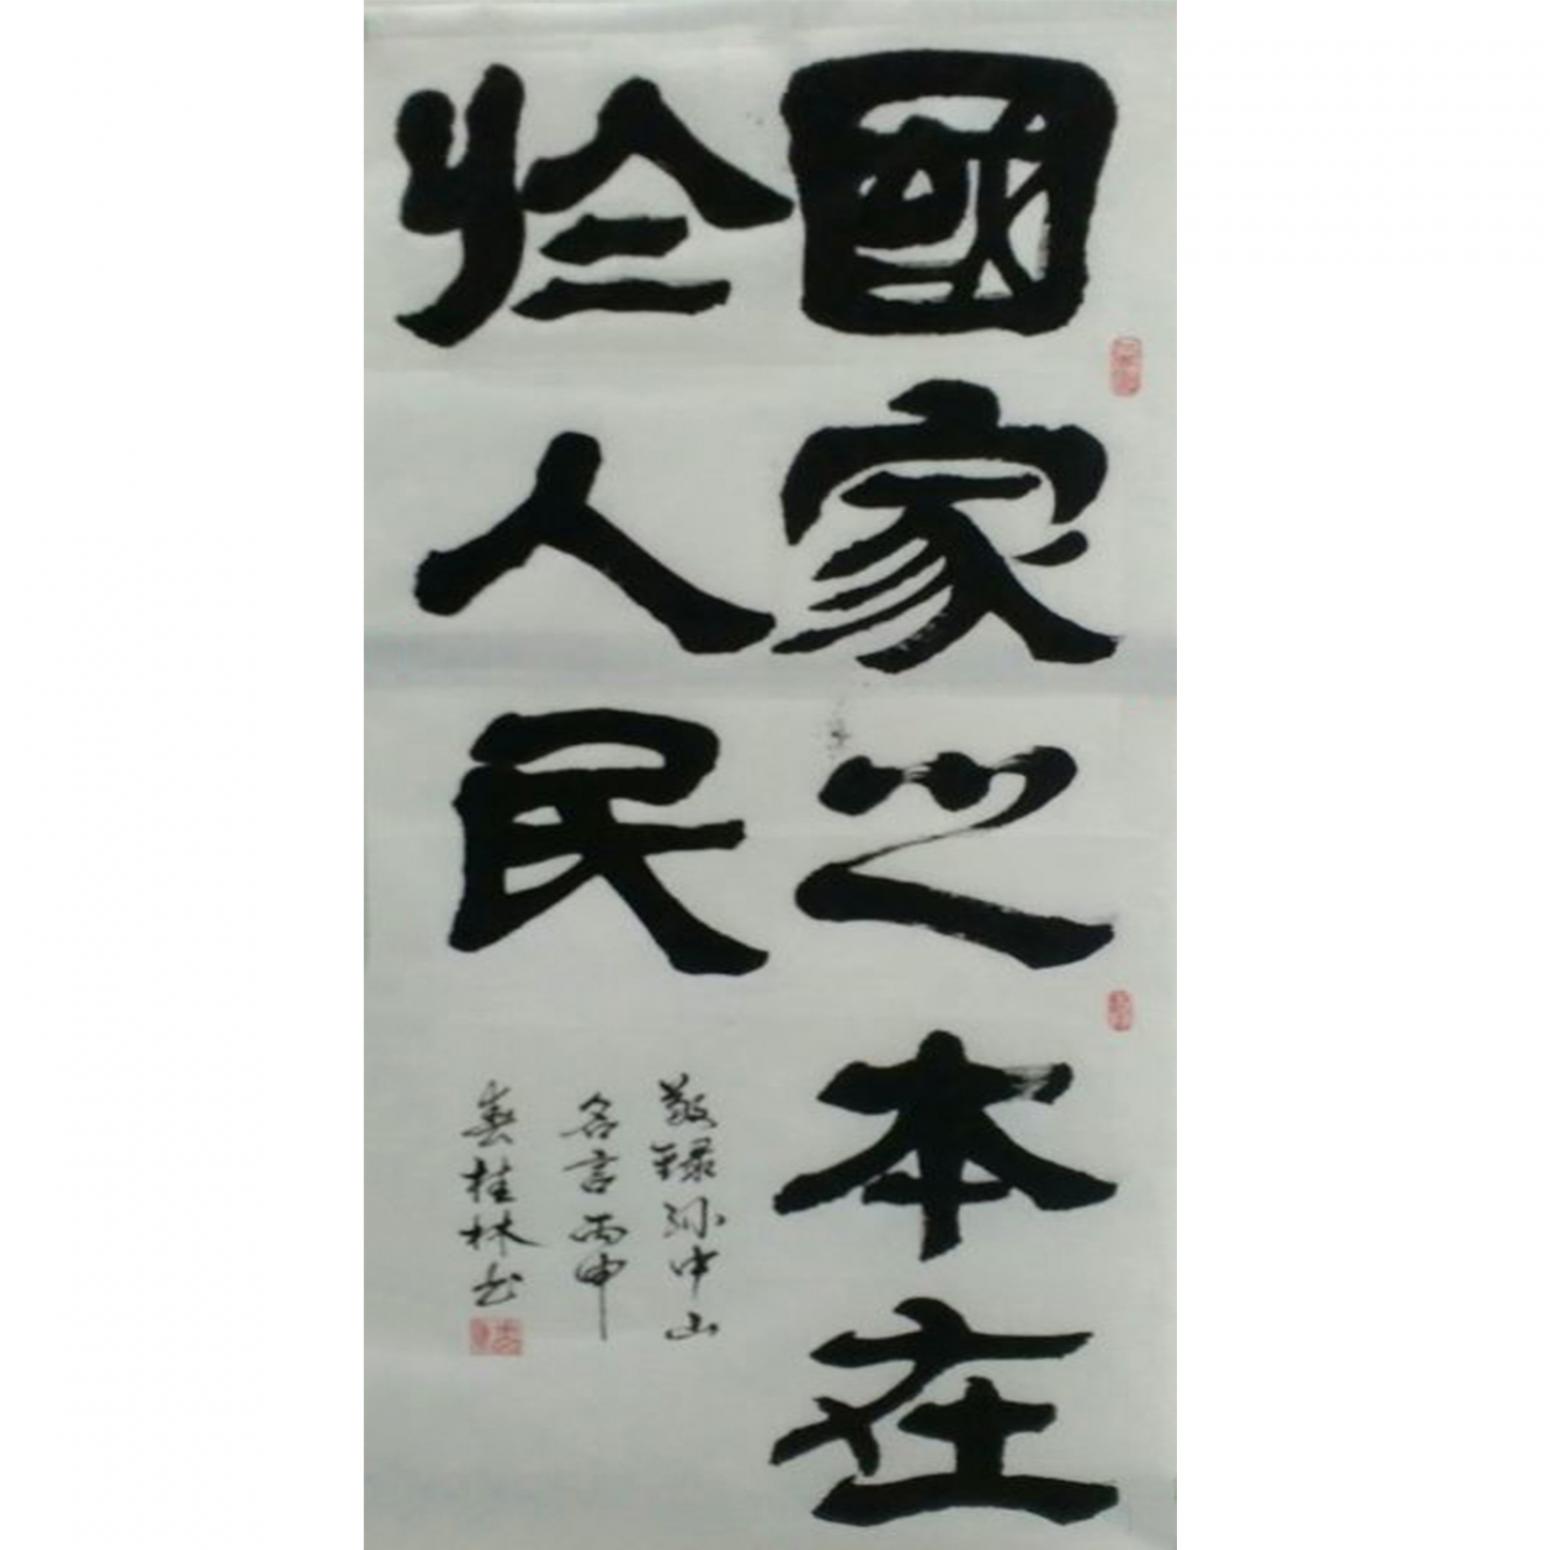 國家之本在
於人民
敬録孫中山
名言丙申
春桂林书